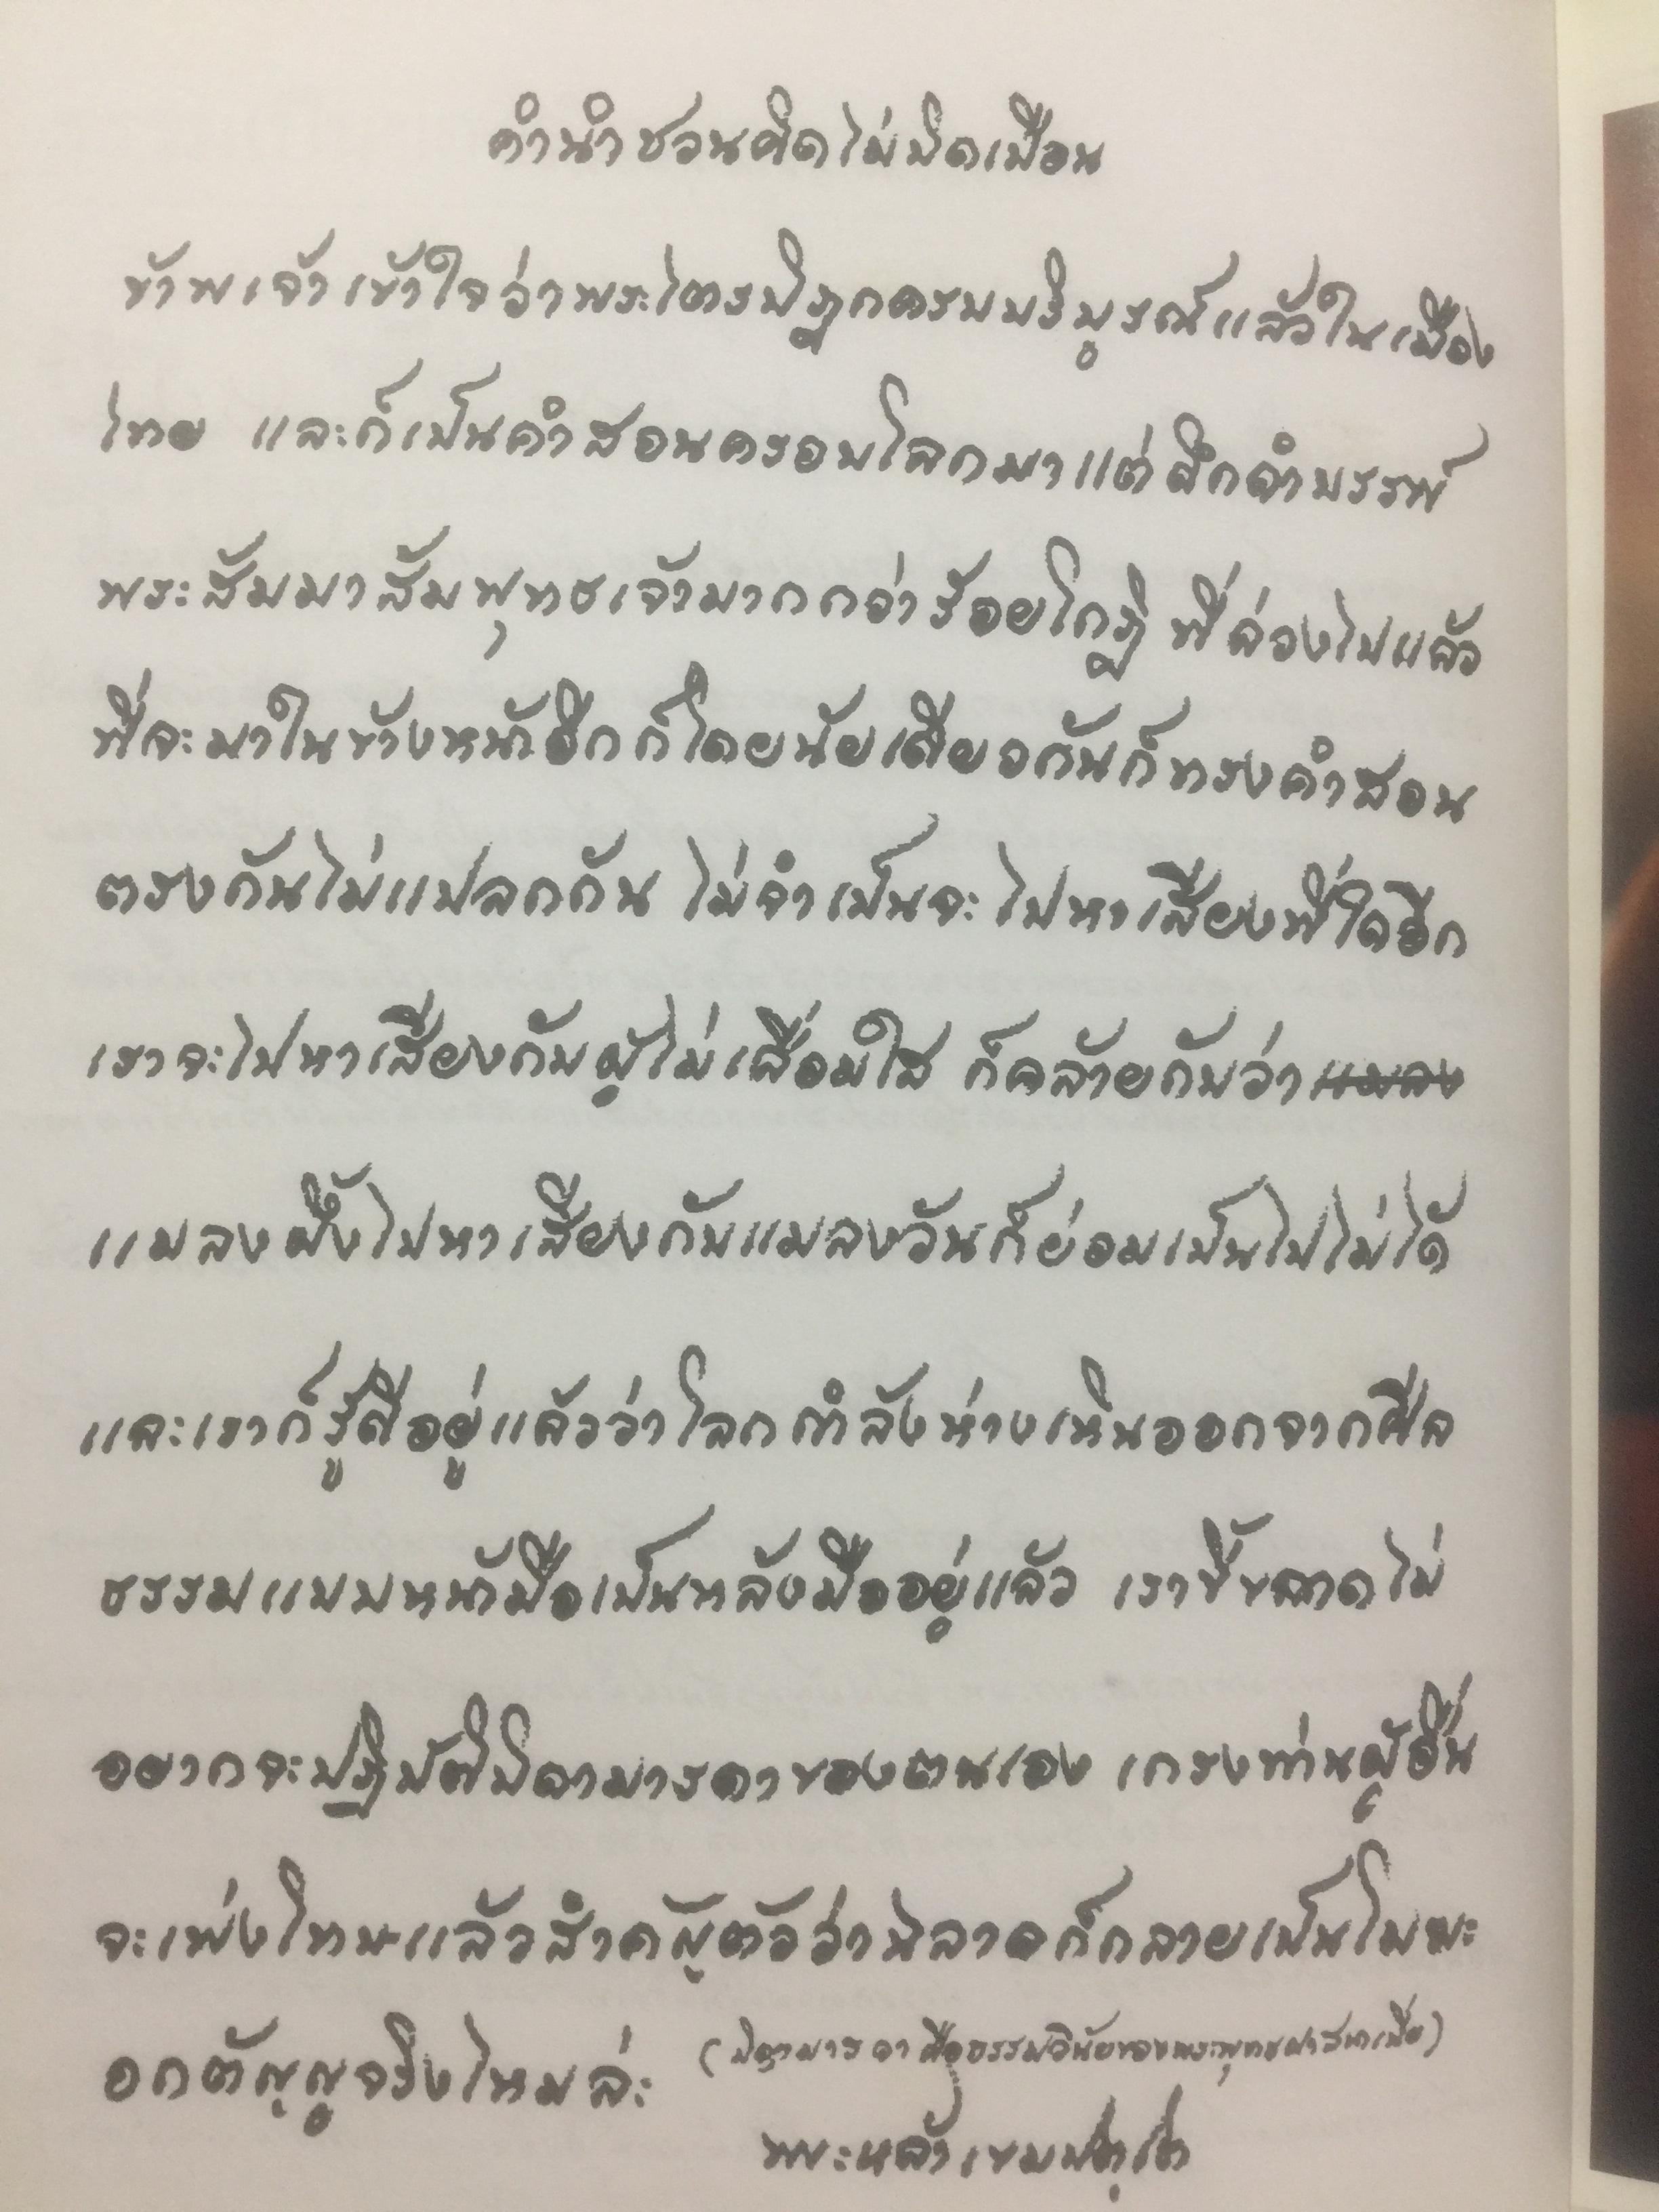 คำนำชวนคิดไม่บิดเบือน
ข้าพเจ้าเข้าใจว่าพระไตรปิฎกครบบริบูรณ์แล้วในเมือง
ไทย และก็เป็นคำสอนครอบโลกมาแต่ดึกดำบรรพ์
พระสัมมาสัมพุทธเจ้ามากกว่าร้อยโกฏิ ที่ล่วงไปแล้ว
ที่จะมาในข้างหน้าอีกก็โดยนัยเดียวกันก็ทรงคำสอน
ตรงกันไม่แปลกกัน ไม่จำเป็นจะไปหาเสียงที่ใดอีก
เราจะไปหาเสียงกับผู้ไม่เลื่อมใส ก็คล้ายกับว่าแมลง
แมลงผึ้งไปหาเสียงกับแมลงวันก็ย่อมเป็นไปไม่ได้
และเราก็รู้ดีอยู่แล้วว่าโลกกำลังห่างเหินออกจากศีล
ธรรมแบบหน้ามือเป็นหลังมืออยู่แล้ว เราขี้ขลาดไม่
อยากจะปฏิบัติบิดามารดาของตนเอง เกรงท่านผู้อื่น
จะเพ่งโทษแล้วสำคัญตัวว่าฉลาดก็กลายเป็นโมฆะ
อกตัญญูจริงไหมล่ะ (บิดามารดาคือธรรมวินัยของพระพุทธศาสนาเน้อ)
พระหล้า เขมปตฺโต